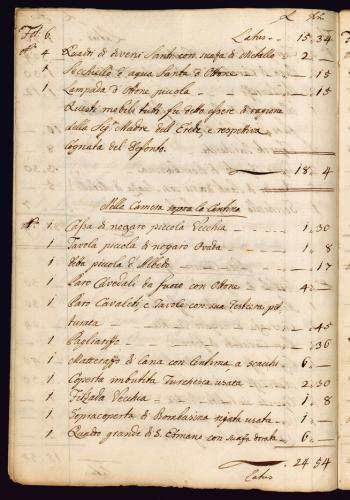 Fol. 6. Latus - - 15. 34
N.º 4 Quadri di diversi Santi con suaza di Metallo 2 . —
1 Secchiello d'aqua Santa d'Ottone — . 15
1 Lampada d'Ottone piccola — . 15
Questi mobili tutti fu detto essere di ragione
della Sig.ra Madre dell' Erede, e respetiva
Cognata del defonto.
18. 4
Nella Camera sopra la Cantina
N.º 1 Cassa di nogaro piccola Vecchia 1. 30
1 Tavola piccola di nogaro Ovada 1. 8
1 detta piccola d'Albedo — . 17
1 Paro Cavedali da fuoco con Ottone 4. —
1 Paro Cavaletti, e Tavole con sua Testiera pit
turata — . 45
1 Pagliarisso — . 36
1 Matterasso di Lana con Contima a scachi 6. —
1 Coperta imbutita Turchesca usata 2. 30
1 Filzada Vecchia 1. 8
1 Sopracoperta di Bombasina rigata usata 1. —
1 Quadro grande di S. con suaza dorata 6. —
24. 54
Latus